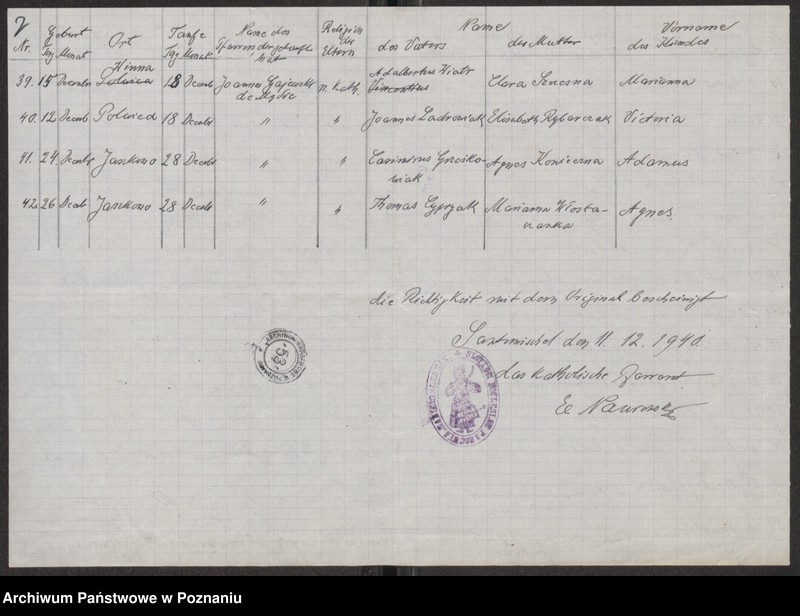 2
Geburt Taufe Name des Religion Name Vorname
Nr. Tag Monat Ort Tag Monat Pfarrers der getauft hat der Eltern des Vaters der Mutter des Kindes
Hinna Adalbertus Wiatr
39. 15 Decembr 18 Decemb Joannes r. Kath. Vincentius Clara Marianna
40. 12 Decemb Polwica 18 Decemb " " Joannes Ladrowiak Elisabeth Rybarczak Victoria
41. 24. Decemb Jaszkowo 28 Decemb " " Casimirus Agnes Konieczna Adamus
wiak
42. 26 Decemb Jaszkowo 28 Decemb " " Thomas Marianna Agnes.
die Richtigkeit mit dem Original bescheinigt
Santomischel den 11. 12. 1940.
das katholische Pfarramt
ARCHIWUM PAŃSTWOWE W POZNANIU
53
Archiwum Państwowe w Poznaniu